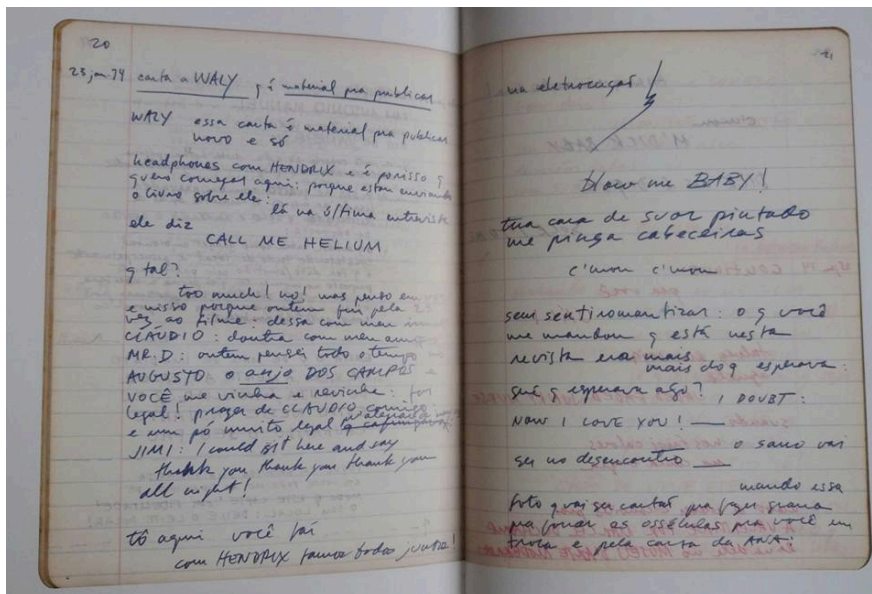 20
23 jan. 74 carta a WALY q é material pra publicar
WALY essa carta é material pra publicar
novo e só
headphones com HENDRIX e é por isso q
quero começar aqui: porque estou enviando
o livro sobre ele:
lá na última entrevista
ele diz
CALL ME HELIUM
q tal?
too much! no! mas penso em
e nisso porque ontem fui pela
vez ao filme: dessa com meu
CLAUDIO: doutra com meu
MR. D: ontem pensei todo o tempo
AUGUSTO o anjo DOS CAMPOS e
VOCÊ me vinha e revinha: foi
legal! praça de CLAUDIO comigo
e um pó muito legal
JIMI: I could sit here and say
thank you thank you thank you
all night!
tô aqui você faí
com HENDRIX tamos todos juntos!
na eletrocuçaõ
blow me BABY!
tua cara de suor pintado
me pinga cabeceiras
c'mon c'mon
sem sentiromantizar: o q você
me mandou q está nesta
revista era mais
mais do q esperava:
será q esperava algo? I DOUBT:
NOW I LOVE YOU!
o sarro vai
ser no desencontro
mando essa
foto q vai ser cartaz pra fazer grana
pra você em
troca e pela carta da ANA: